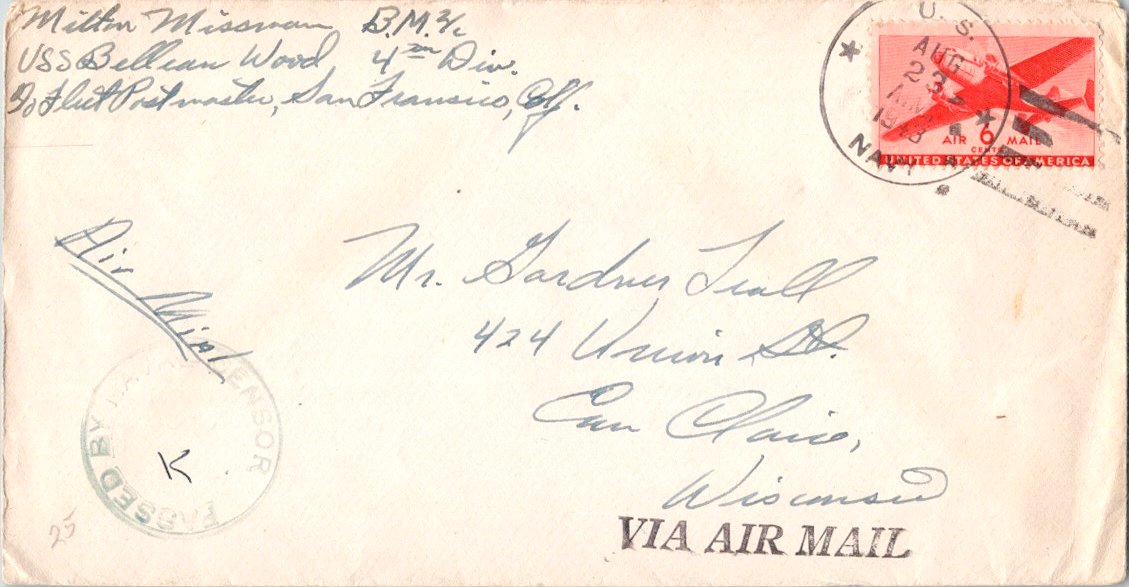 Milton Missman B.M. 2/c
USS Bellean Wood 4th Div.
c/o Fleet Postmaster, San Fransico, Calf.
U. S.
AUG
23
1943
NAVY
AIR 6 MAIL
CENTS
UNITED STATES OF AMERICA
Air Mial
Mr. Gardner Leall
424 Union St.
Eau Claire,
Wisconsin
PASSED BY NAVAL CENSOR
K
25
VIA AIR MAIL